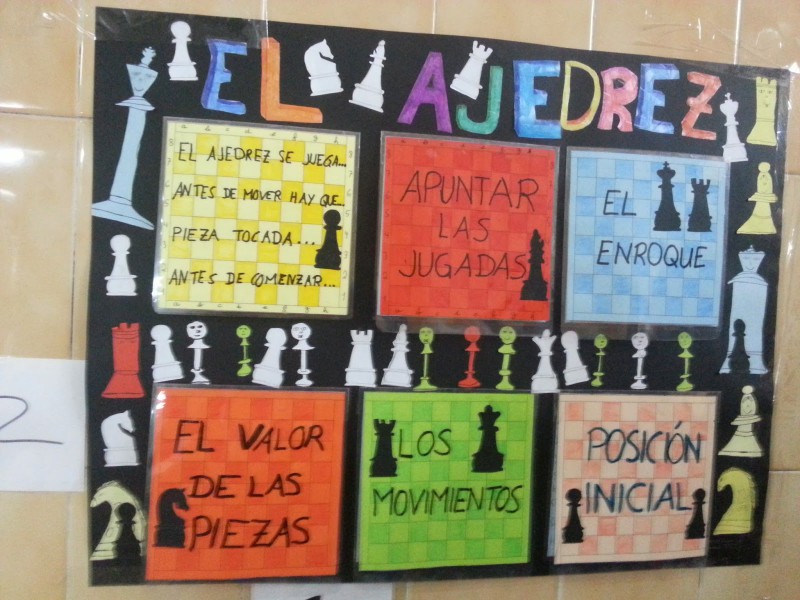 EL AJEDREZ
EL AJEDREZ SE JUEGA...
ANTES DE MOVER HAY QUE...
PIEZA TOCADA...
ANTES DE COMENZAR...
APUNTAR
LAS
JUGADAS
EL
ENROQUE
2
EL VALOR
DE LAS
PIEZAS
LOS
MOVIMIENTOS
POSICIÓN
INICIAL